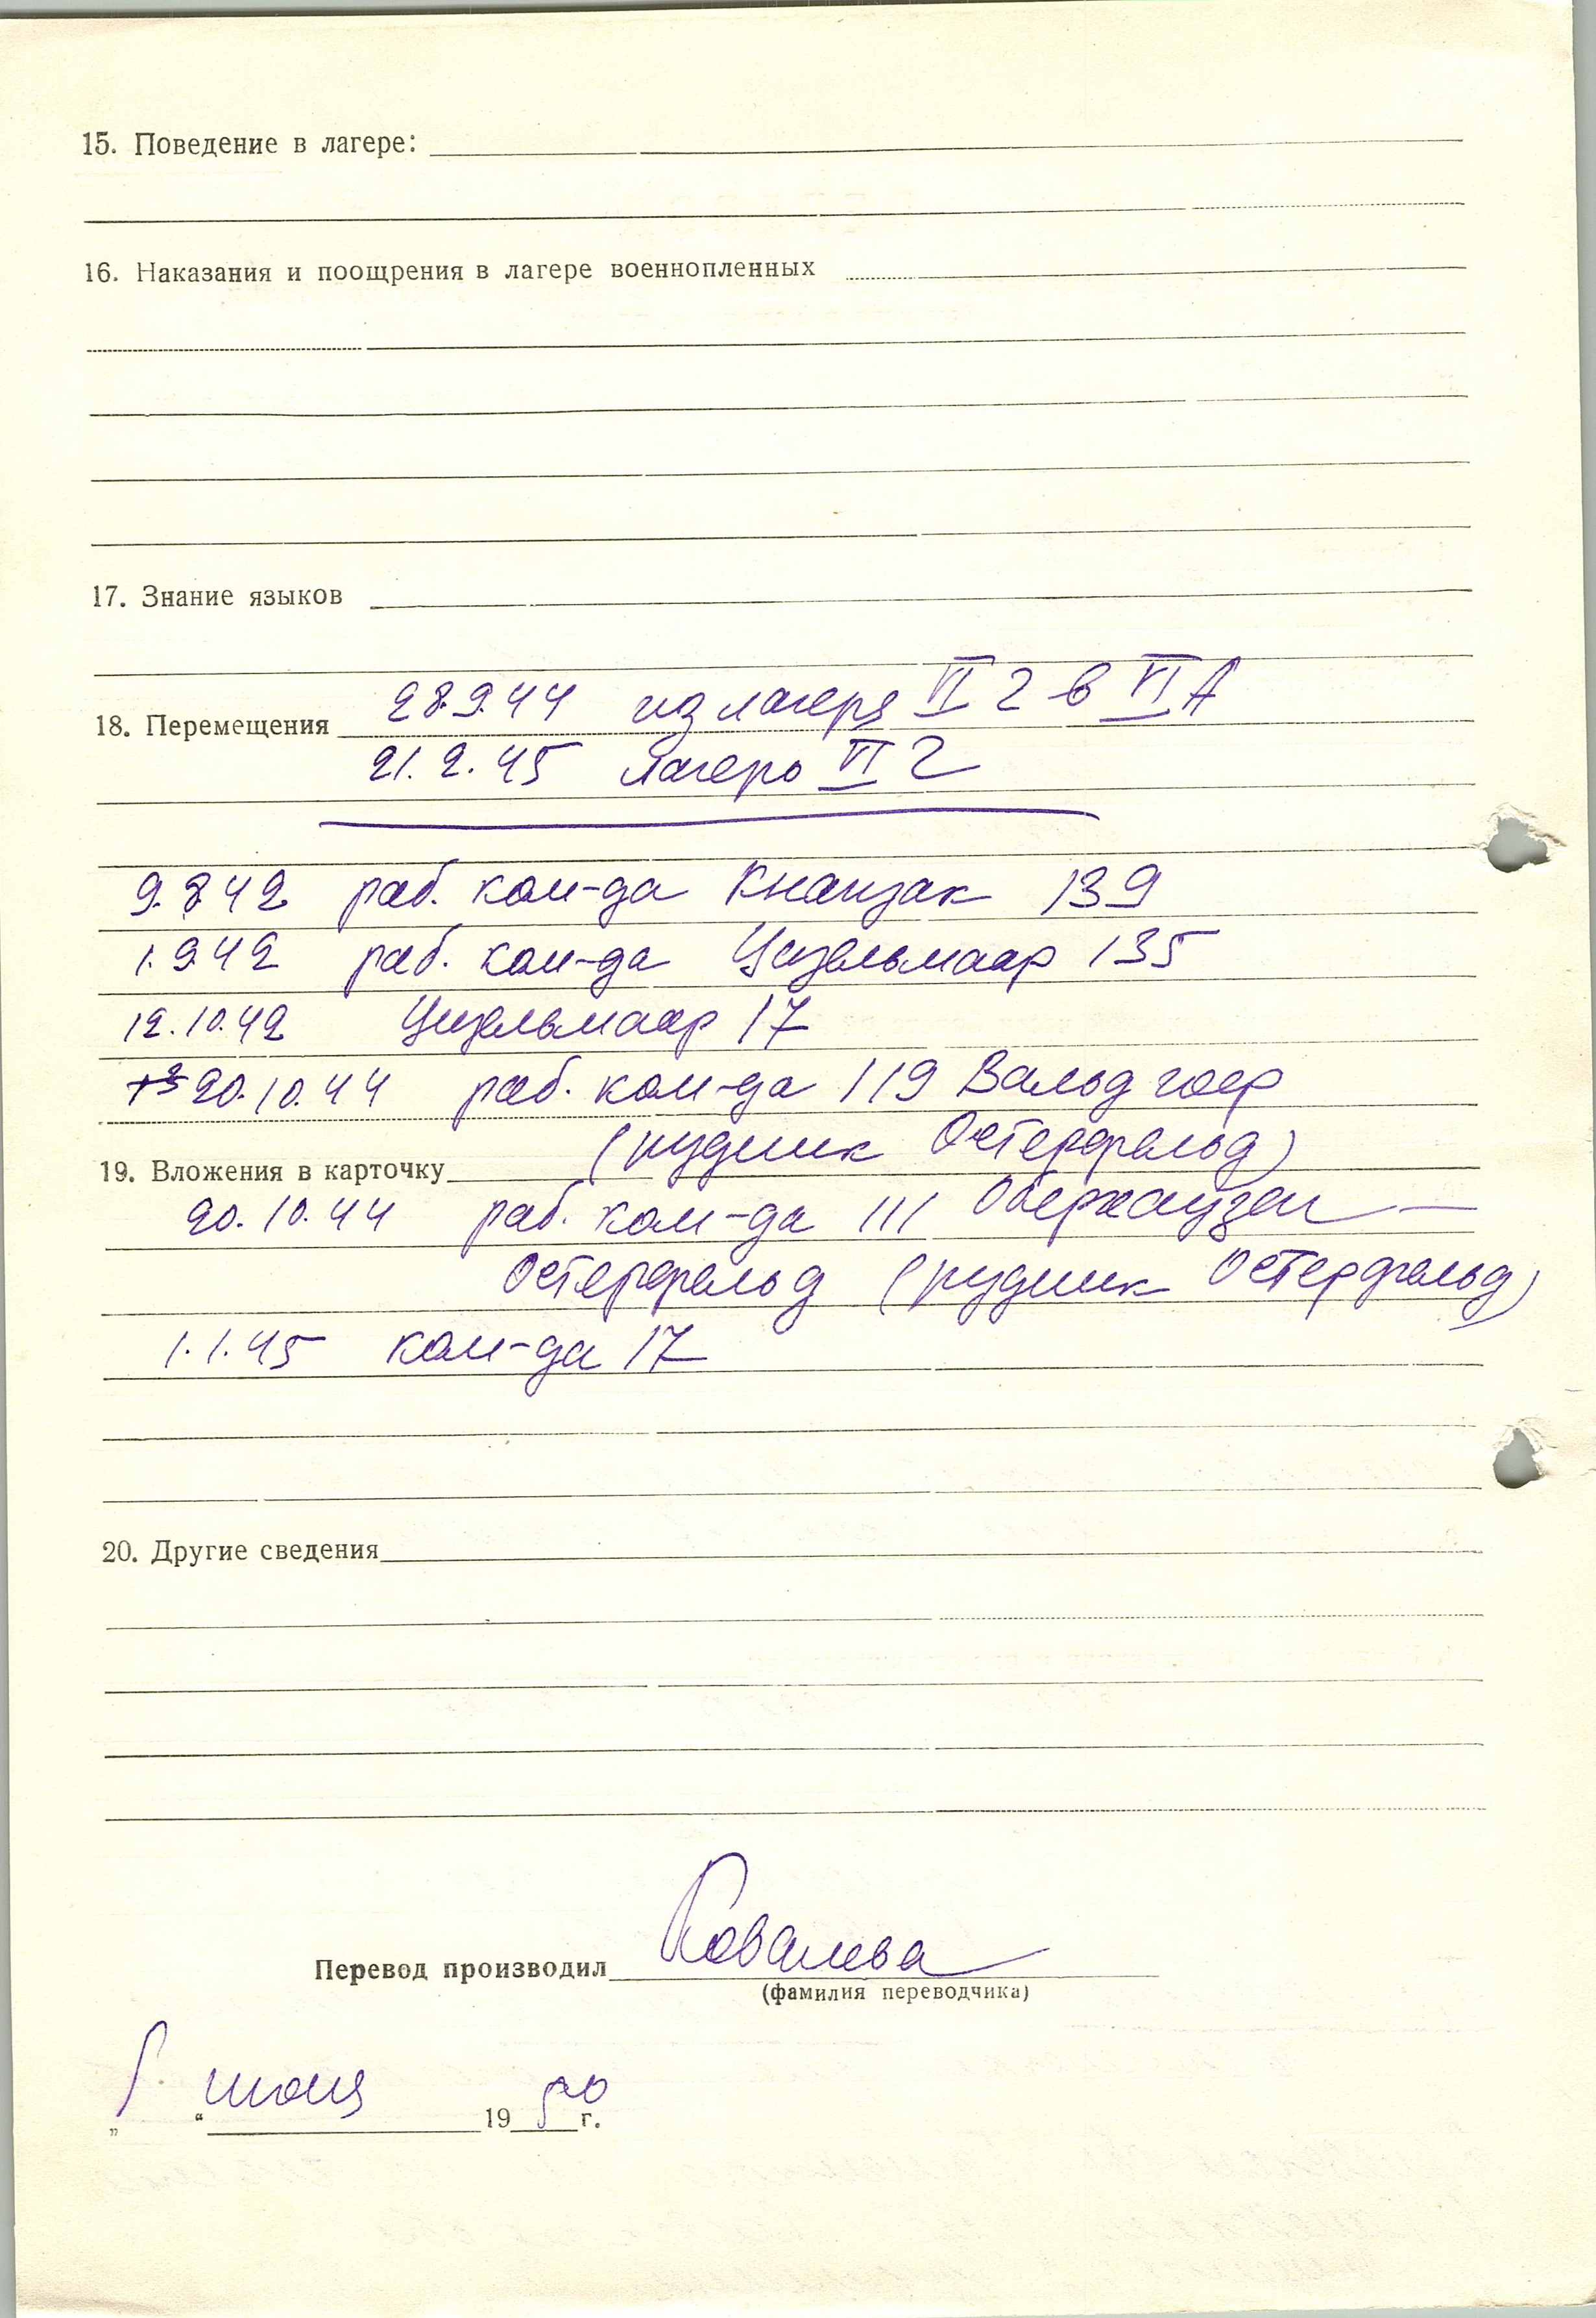 15. Поведение в лагере:
16. Наказания и поощрения в лагере военнопленных
17. Знание языков
28.9.44 из лагеря VI Г в VI А
18. Перемещения
21.2.45 Лагерь VI Г
9.8.42 раб. ком-да Кнапзак 139
1.9.42 раб. ком-да Цизельмаар 135
12.10.42 Цизельмаар 17
20.10.44 раб. ком-да 119 Вальдгоер
(рудник Остерфельд)
19. Вложения в карточку
20.10.44 раб. ком-да 111 Оберхаузен —
Остерфельд (рудник Остерфельд)
1.1.45 ком-да 17
20. Другие сведения
Перевод производил Ковалева
(фамилия переводчика)
„ “ июня 1950 г.